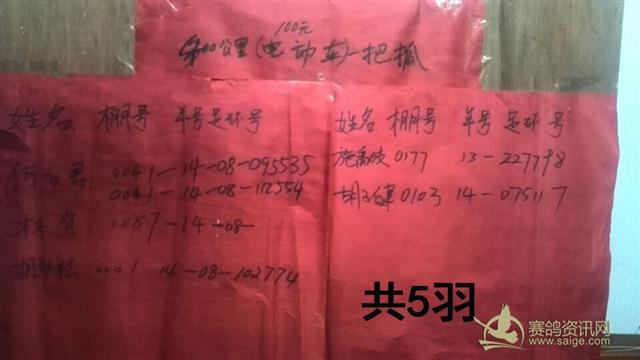 100元
公里(电动车)一把抓
姓名 棚号 羊号 足环号
何 君 0041-14-08-095535
0041-14-08-112554
林 0087-14-08-
胡 0001 14-08-102774
姓名 棚号 羊号 足环号
施 0177 13-227798
胡 健 0103 14-075117
共5羽
赛鸽资讯网
www.saige.com